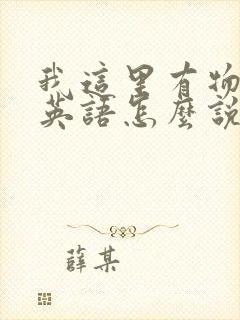 我這里有物
英語怎麼說
薛某